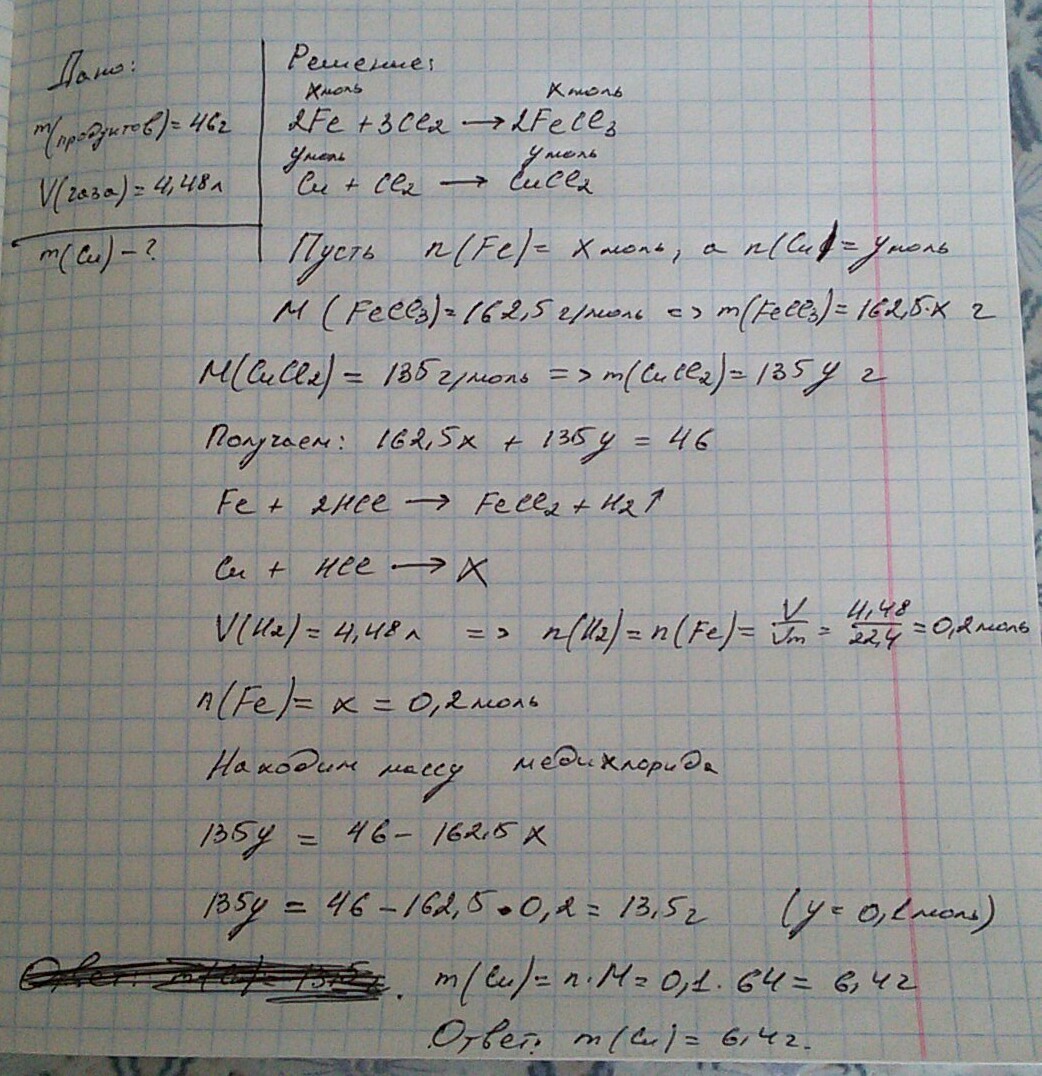 Дано:
m(продуктов)=46г
V(газа)=4,48л
m(Cu)-?
Решение:
x моль x моль
2Fe + 3Cl2 → 2FeCl3
y моль y моль
Cu + Cl2 → CuCl2
Пусть n(Fe)= x моль, а n(Cu)= y моль
M(FeCl3)=162,5 г/моль => m(FeCl3)=162,5·x г
M(CuCl2) = 135 г/моль => m(CuCl2)= 135y г
Получаем: 162,5x + 135y = 46
Fe + 2HCl → FeCl2 + H2↑
Cu + HCl → X
V(H2)= 4,48л => n(H2)= n(Fe)= V/Vm = 4,48/22,4 = 0,2 моль
n(Fe)= x = 0,2 моль
Находим массу меди хлорида
135y = 46 - 162,5x
135y = 46 - 162,5·0,2 = 13,5г (y = 0,1 моль)
Ответ: m(Cu)= 13,5г. m(Cu)= n·M = 0,1·64 = 6,4г
Ответ: m(Cu)= 6,4г.